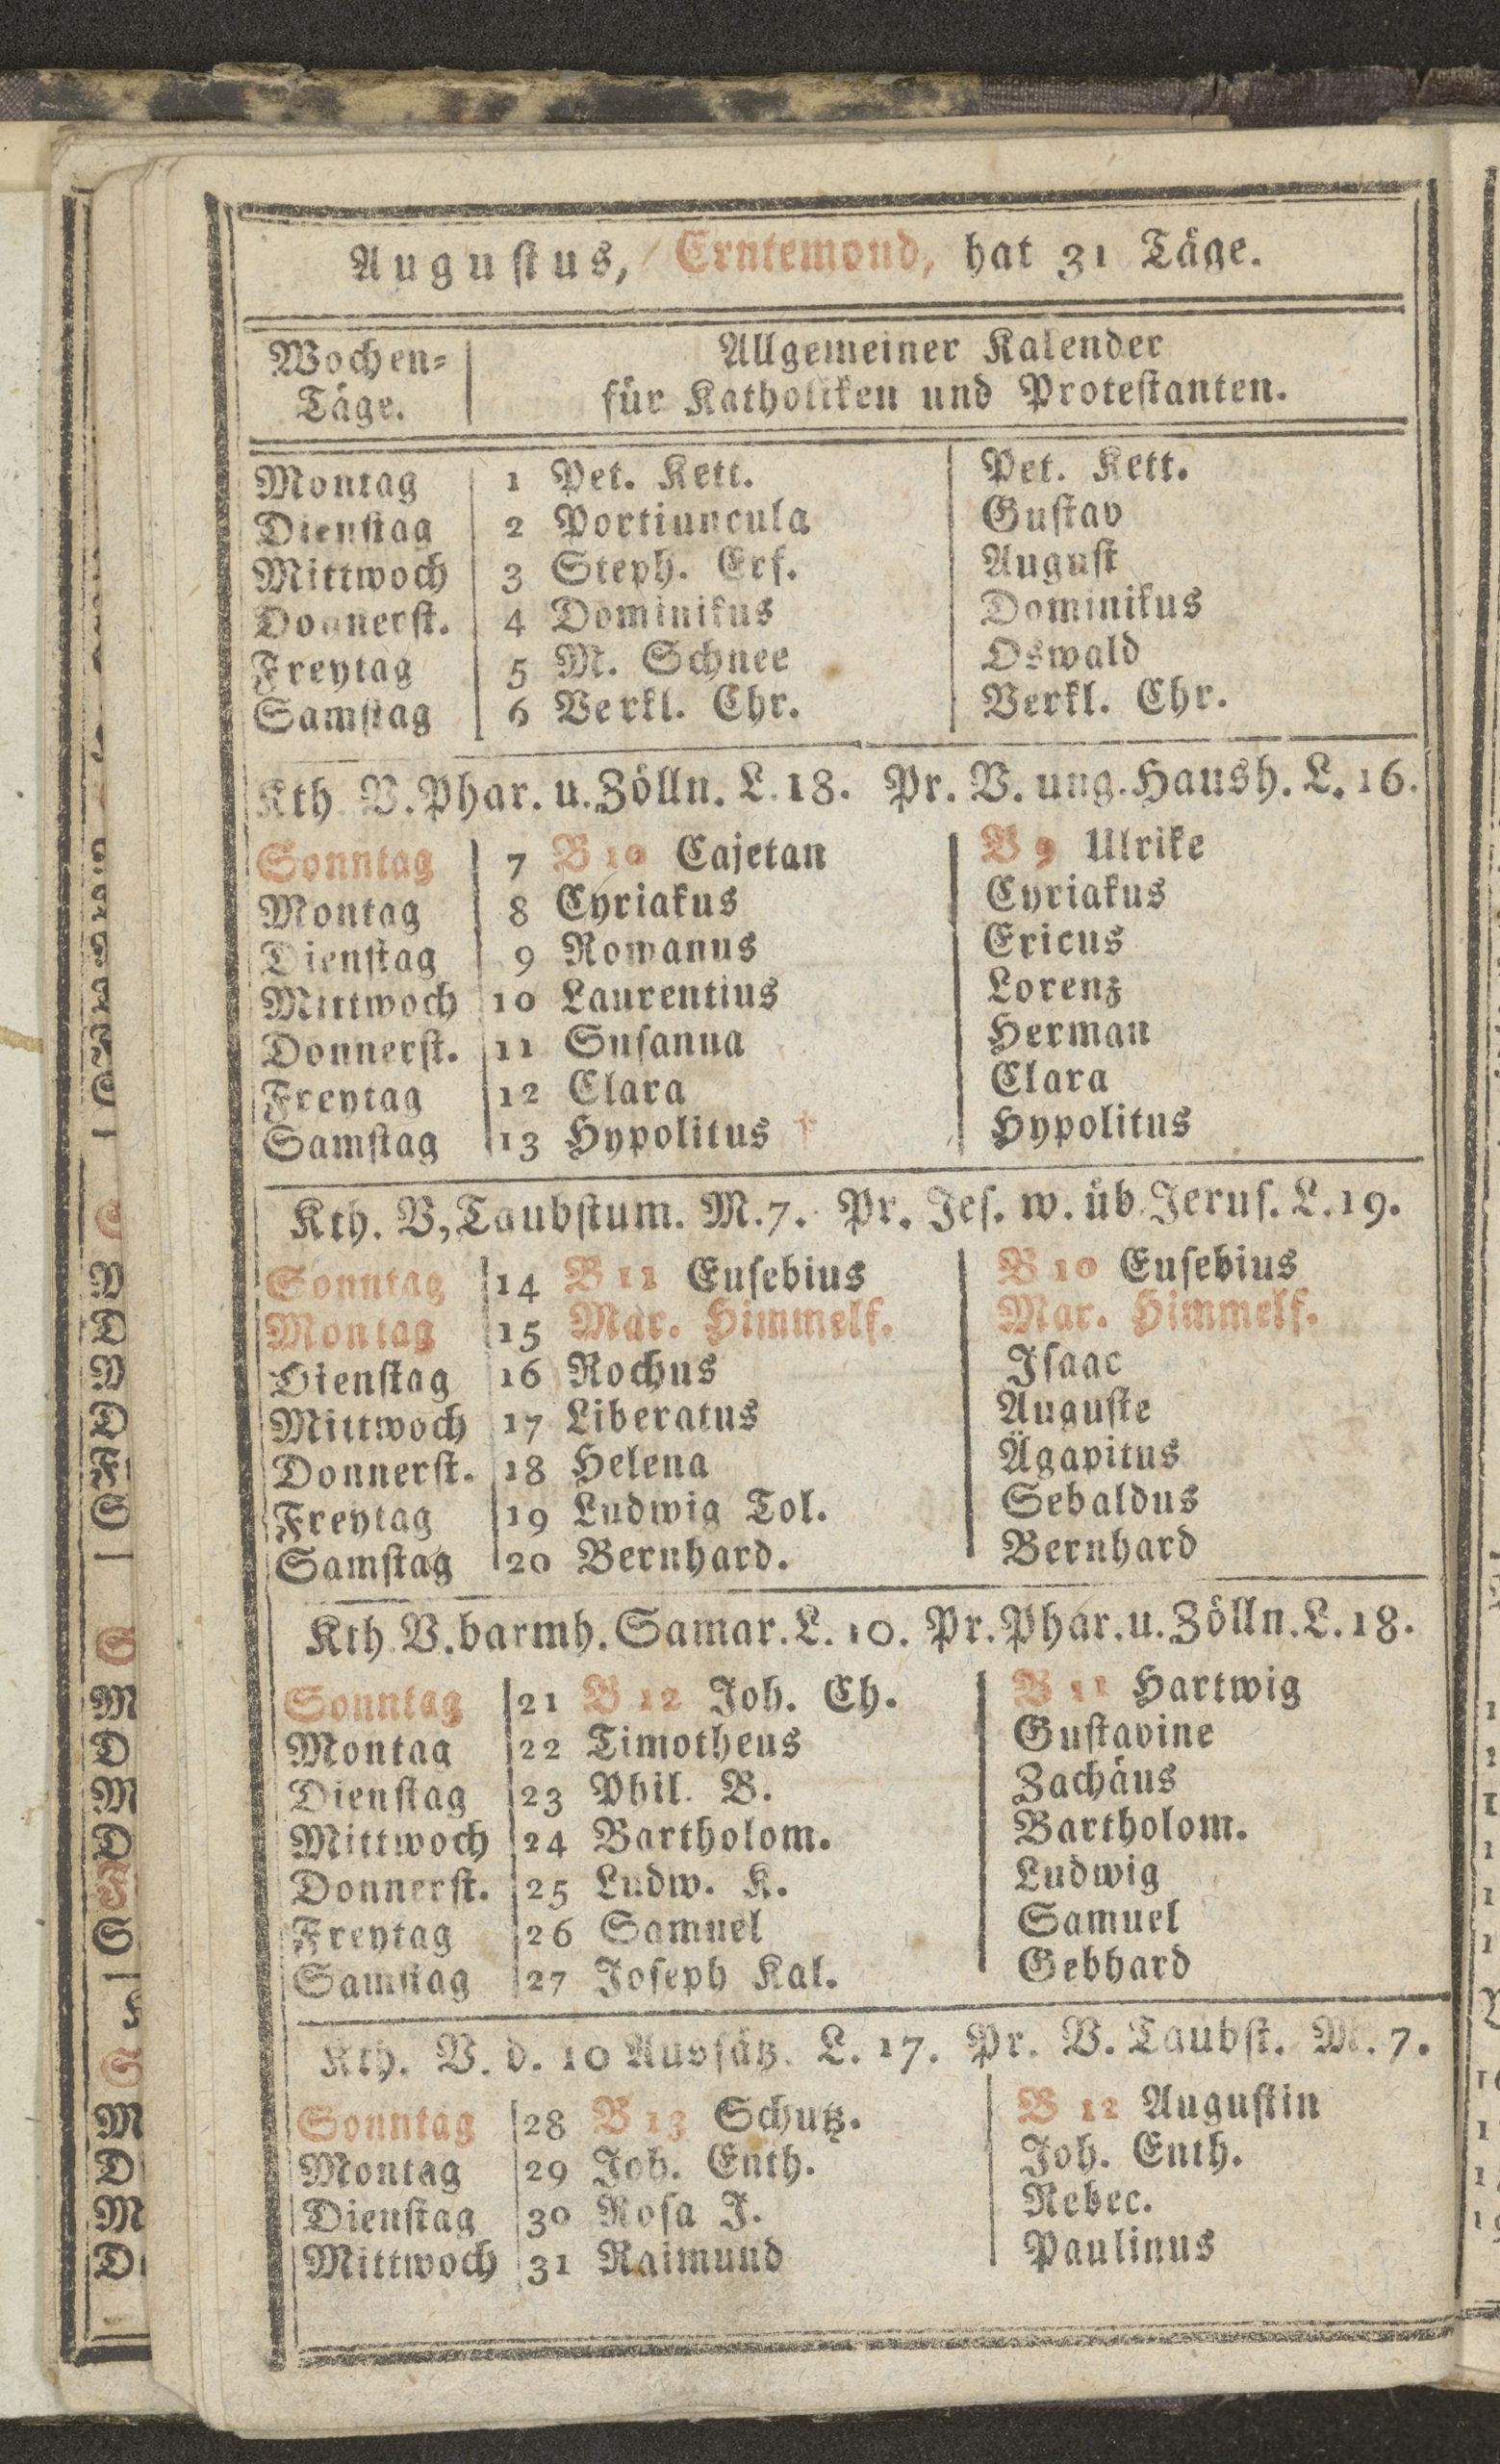 Auguſtus, Erntemond, hat 31 Täge.
Wochen-
Täge.
Allgemeiner Kalender
für Katholiken und Proteſtanten.
Montag 1 Pet. Kett. Pet. Kett.
Dienſtag 2 Portiuncula Guſtav
Mittwoch 3 Steph. Erf. Auguſt
Donnerſt. 4 Dominikus Dominikus
Freytag 5 M. Schnee Oswald
Samſtag 6 Verkl. Chr. Verkl. Chr.
Kth V. Phar. u. Zölln. L. 18. Pr. V. ung. Haush. L. 16.
Sonntag 7 B 10 Cajetan B 9 Ulrike
Montag 8 Cyriakus Cyriakus
Dienſtag 9 Romanus Ericus
Mittwoch 10 Laurentius Lorenz
Donnerſt. 11 Suſanna Herman
Freytag 12 Clara Clara
Samſtag 13 Hypolitus † Hypolitus
Kth. V, Taubſtum. M. 7. Pr. Jeſ. w. üb Jeruſ. L. 19.
Sonntag 14 B 11 Euſebius B 10 Euſebius
Montag 15 Mar. Himmelf. Mar. Himmelf.
Dienſtag 16 Rochus Iſaac
Mittwoch 17 Liberatus Auguſte
Donnerſt. 18 Helena Ägapitus
Freytag 19 Ludwig Tol. Sebaldus
Samſtag 20 Bernhard. Bernhard
Kth V. barmh. Samar. L. 10. Pr. Phar. u. Zölln. L. 18.
Sonntag 21 B 12 Joh. Ch. B 11 Hartwig
Montag 22 Timotheus Guſtavine
Dienſtag 23 Phil. B. Zachäus
Mittwoch 24 Bartholom. Bartholom.
Donnerſt. 25 Ludw. K. Ludwig
Freytag 26 Samuel Samuel
Samſtag 27 Joſeph Kal. Gebhard
Kth. V. d. 10 Ausſätz. L. 17. Pr. V. Taubſt. M. 7.
Sonntag 28 B 13 Schutz. B 12 Auguſtin
Montag 29 Joh. Enth. Joh. Enth.
Dienſtag 30 Roſa J. Rebec.
Mittwoch 31 Raimund Paulinus